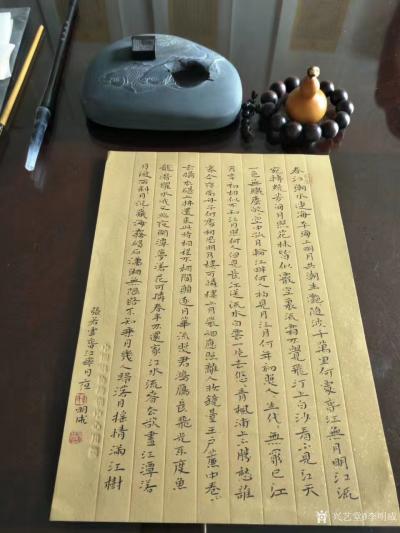 春江潮水連海平海上明月共潮生灩隨波千萬里何處春江無月明江流
宛轉繞芳甸月照花林皆似霰空裏流霜不覺飛汀上白沙看不見江天
一色無纖塵皎空中孤月輪江畔何人初見月江月何年初照人人生代無窮已江
月年初相似不知江月待何人但見長江送流水白雲一片去悠青楓浦上不勝愁誰
家今夜扁舟子何處相思明月樓可憐樓上月徘徊應照離人妝鏡臺玉戶簾中卷不
去擣衣砧上拂還來此時相望不相聞願逐月華流照君鴻雁長飛光不度魚
龍潛躍水成文昨夜閒潭夢落花可憐春半不還家江水流春去欲盡江潭落
月復西斜月沉藏海霧碣石瀟湘無限路不知乘月幾人歸落月搖情滿江樹
張若虛春江花月夜 明成
兴艺堂@李明成